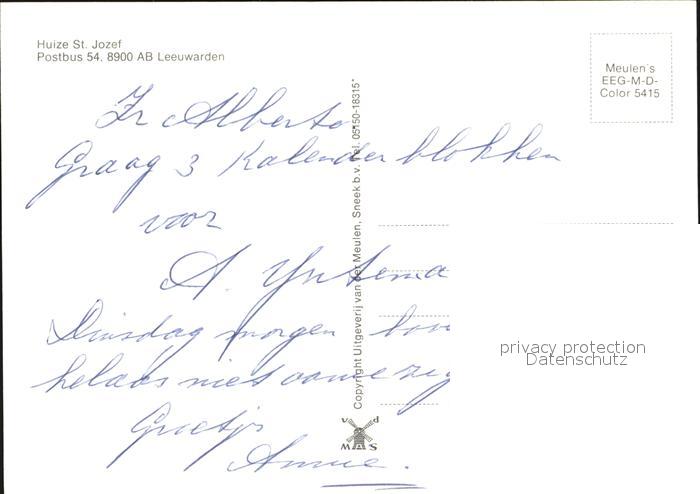 Huize St. Jozef
Postbus 54, 8900 AB Leeuwarden
Meulen's
EEG-M-D-
Color 5415
Zr Alberta
Graag 3 Kalender blokken
voor
A. Yntema
Dinsdag morgen
helaas niet aanwezig
Groetjs
Annie.
Copyright Uitgeverij van der Meulen, Sneek b.v. Tel. 05150-18315*
v d
M S
privacy protection
Datenschutz